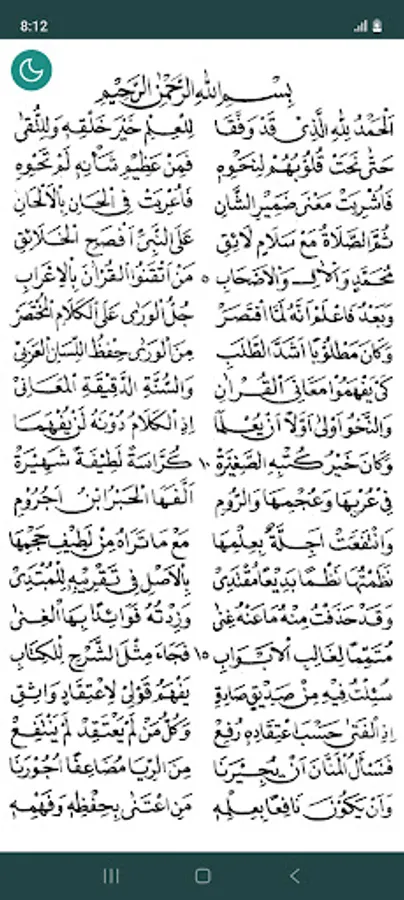 8:12
بِسْمِ اللهِ الرَّحْمٰنِ الرَّحِيْمِ
اَلْحَمْدُ لِلّٰهِ الَّذِيْ قَدْ وَفَّقَا لِلْعِلْمِ خَيْرَ خَلْقِهِ وَلِلتُّقٰى
حَتّٰى نَحَتْ قُلُوْبُهُمْ لِنَحْوِهِ فَمِنْ عَظِيْمِ شَأْنِهِ لَمْ تَحْوِهِ
فَاُشْرِبَتْ مَعْنٰى ضَمِيْرِ الشَّانِ فَاُعْرِبَتْ فِى الْحَانِ بِالْاَلْحَانِ
ثُمَّ الصَّلَاةُ مَعْ سَلَامٍ لَائِقِ عَلَى النَّبِيِّ اَفْصَحِ الْخَلَائِقِ
مُحَمَّدٍ وَالْاٰلِ وَالْاَصْحَابِ ٥ مَنْ اَتْقَنُوا الْقُرْاٰنَ بِالْاِعْرَابِ
وَبَعْدُ فَاعْلَمْ اَنَّهُ لَمَّا اقْتَصَرْ جُلُّ الْوَرٰى عَلَى الْكَلَامِ الْمُخْتَصَرْ
وَكَانَ مَطْلُوْبًا اَشَدَّ الطَّلَبِ مِنَ الْوَرٰى حِفْظُ اللِّسَانِ الْعَرَبِيْ
كَيْ يَفْهَمُوْا مَعَانِيَ الْقُرْاٰنِ وَالسُّنَّةِ الدَّقِيْقَةِ الْمَعَانِيْ
وَالنَّحْوُ اَوْلٰى اَوَّلًا اَنْ يُعْلَمَا اِذِ الْكَلَامُ دُوْنَهُ لَنْ يُفْهَمَا
وَكَانَ خَيْرُ كُتْبِهِ الصَّغِيْرَةْ ١٠ كُرَّاسَةً لَطِيْفَةً شَهِيْرَةْ
فِيْ عُرْبِهَا وَعُجْمِهَا وَالرُّوْمِ اَلَّفَهَا الْحَبْرُ ابْنُ اٰجُرُّوْمِ
وَانْتَفَعَتْ اَجِلَّةٌ بِعِلْمِهَا مَعْ مَا تَرَاهُ مِنْ لَطِيْفِ حَجْمِهَا
نَظَمْتُهَا نَظْمًا بَدِيْعًا مُقْتَدِيْ بِالْاَصْلِ فِيْ تَقْرِيْبِهِ لِلْمُبْتَدِيْ
وَقَدْ حَذَفْتُ مِنْهُ مَا عَنْهُ غِنٰى وَزِدْتُهُ فَوَائِدًا بِهَا الْغِنٰى
مُتَمِّمًا لِغَالِبِ الْاَبْوَابِ ١٥ فَجَاءَ مِثْلَ الشَّرْحِ لِلْكِتَابِ
سُئِلْتُ فِيْهِ مِنْ صَدِيْقٍ صَادِقِ يَفْهَمُ قَوْلِيْ لِاعْتِقَادٍ وَاثِقِ
اِذِ الْفَتٰى حَسْبَ اعْتِقَادِهِ رُفِعْ وَكُلُّ مَنْ لَمْ يَعْتَقِدْ لَمْ يَنْتَفِعْ
فَنَسْأَلُ الْمَنَّانَ اَنْ يُجِيْرَنَا مِنَ الرِّيَا مُضَاعِفًا اُجُوْرَنَا
وَاَنْ يَكُوْنَ نَافِعًا بِعِلْمِهِ مَنِ اعْتَنٰى بِحِفْظِهِ وَفَهْمِهِ